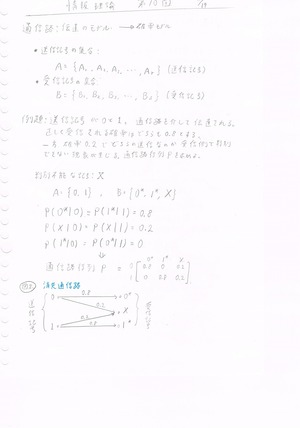 情報理論 第10回 /19
通信路:伝送のモデル → 確率モデル
・送信記号の集合:
A = {A₁, A₂, A₃, …, Aᵣ} (送信記号)
・受信記号の集合:
B = {B₁, B₂, B₃, …, Bₛ} (受信記号)
例題:送信記号が0と1、通信路を介して伝送される。
正しく受信される確率はどちらも0.8とする。
一方、確率0.2でどちらの送信なのか受信側で判別
できない
通信路行列Pを求めよ。
判別不能な記号:X
A = {0, 1}, B = {0*, 1*, X}
P(0*|0) = P(1*|1) = 0.8
P(X|0) = P(X|1) = 0.2
P(1*|0) = P(0*|1) = 0
⇓
0* 1* X
通信路行列 P = 0 [ 0.8 0 0.2 ]
1 [ 0 0.8 0.2 ]
消失通信路
送信記号 0 0.8 0* 受信記号
0.2 X
0.2
1 0.8 1*